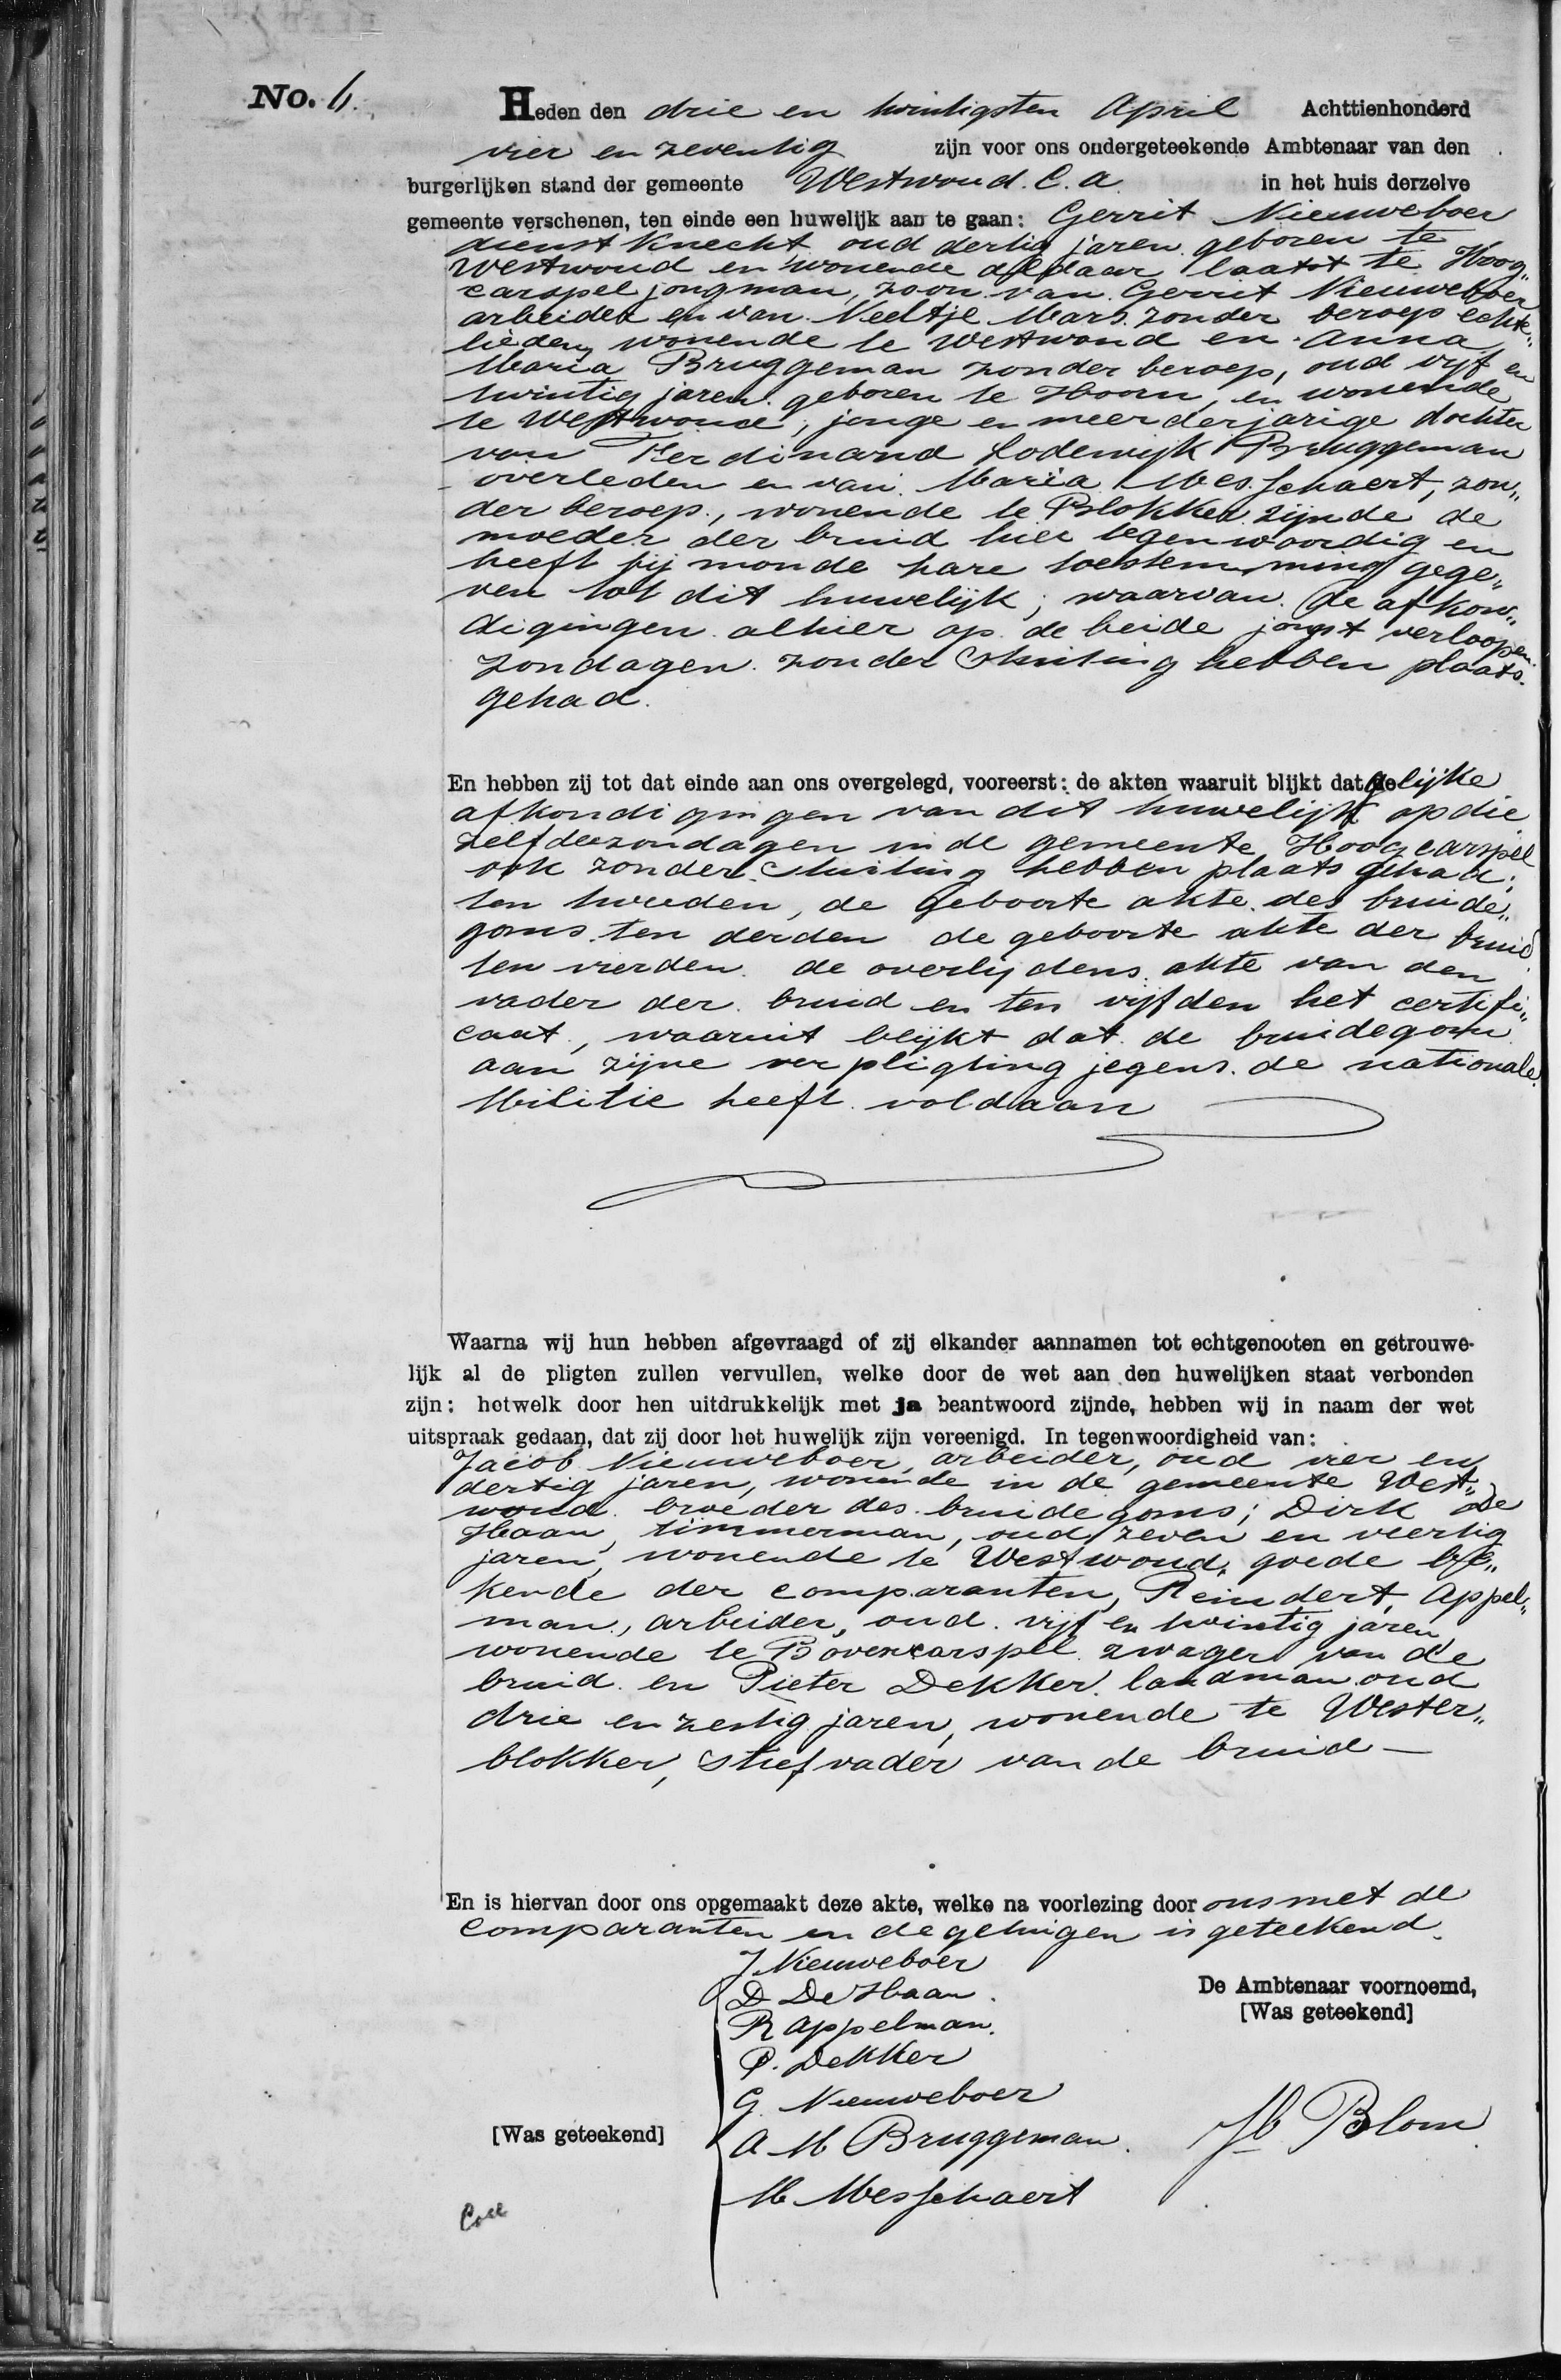 No. 6.
Heden den drie en twintigsten April Achttienhonderd
vier en zeventig zijn voor ons ondergeteekende Ambtenaar van den
burgerlijken stand der gemeente Westwoud. C. a. in het huis derzelve
gemeente verschenen, ten einde een huwelijk aan te gaan: Gerrit Nieuweboer
dienst knecht, oud dertig jaren geboren te
Westwoud en wonende aldaar laatst te Hoog„
carspel jongman, zoon van Gerrit Nieuweboer
arbeider en van Neeltje Mars zonder beroep echte„
lieden, wonende te Westwoud en Anna
Maria Bruggeman zonder beroep, oud vijf en
twintig jaren geboren te Hoorn, en wonende
te Westwoud, jonge en meerderjarige dochter
van Ferdinand Lodewijk Bruggeman
overleden en van Maria Messchaert, zon„
der beroep, wonende te Blokker zijnde de
moeder der bruid hier tegenwoordig en
heeft bij monde hare toestemming gege„
ven tot dit huwelijk; waarvan de afkon„
digingen alhier op de beide jongst verloopen
zondagen zonder stuiting hebben plaats
gehad.
En hebben zij tot dat einde aan ons overgelegd, vooreerst: de akten waaruit blijkt dat gelijke
afkondigingen van dit huwelijk op die
zelfde zondagen in de gemeente Hoogcarspel
ook zonder stuiting hebben plaats gehad;
ten tweeden, de geboorte akte des bruide„
goms, ten derden de geboorte akte der bruid
ten vierden de overlijdens akte van den
vader der bruid en ten vijfden het certifi„
caat, waaruit blijkt dat de bruidegom
aan zijne verpligting jegens de nationale
Militie heeft voldaan
Waarna wij hun hebben afgevraagd of zij elkander aannamen tot echtgenooten en getrouwe-
lijk al de pligten zullen vervullen, welke door de wet aan den huwelijken staat verbonden
zijn: hetwelk door hen uitdrukkelijk met ja beantwoord zijnde, hebben wij in naam der wet
uitspraak gedaan, dat zij door het huwelijk zijn vereenigd. In tegenwoordigheid van:
Jacob Nieuweboer, arbeider, oud vier en
dertig jaren, wonende in de gemeente West„
woud broeder des bruidegoms; Dirk De
Haan, timmerman, oud zeven en veertig
jaren, wonende te Westwoud, goede be„
kende der comparanten, Reindert Appel„
man, arbeider, oud vijf en twintig jaren
wonende te Bovencarspel zwager van de
bruid en Pieter Dekker landman oud
drie en zestig jaren, wonende te Wester„
blokker, stiefvader van de bruid —
En is hiervan door ons opgemaakt deze akte, welke na voorlezing door ons met de
comparanten en de getuigen is geteekend.
J. Nieuweboer
D De Haan.
R Appelman.
P. Dekker
G. Nieuweboer
A M Bruggeman.
M Messchaert
[Was geteekend]
De Ambtenaar voornoemd,
[Was geteekend]
Jb Blom